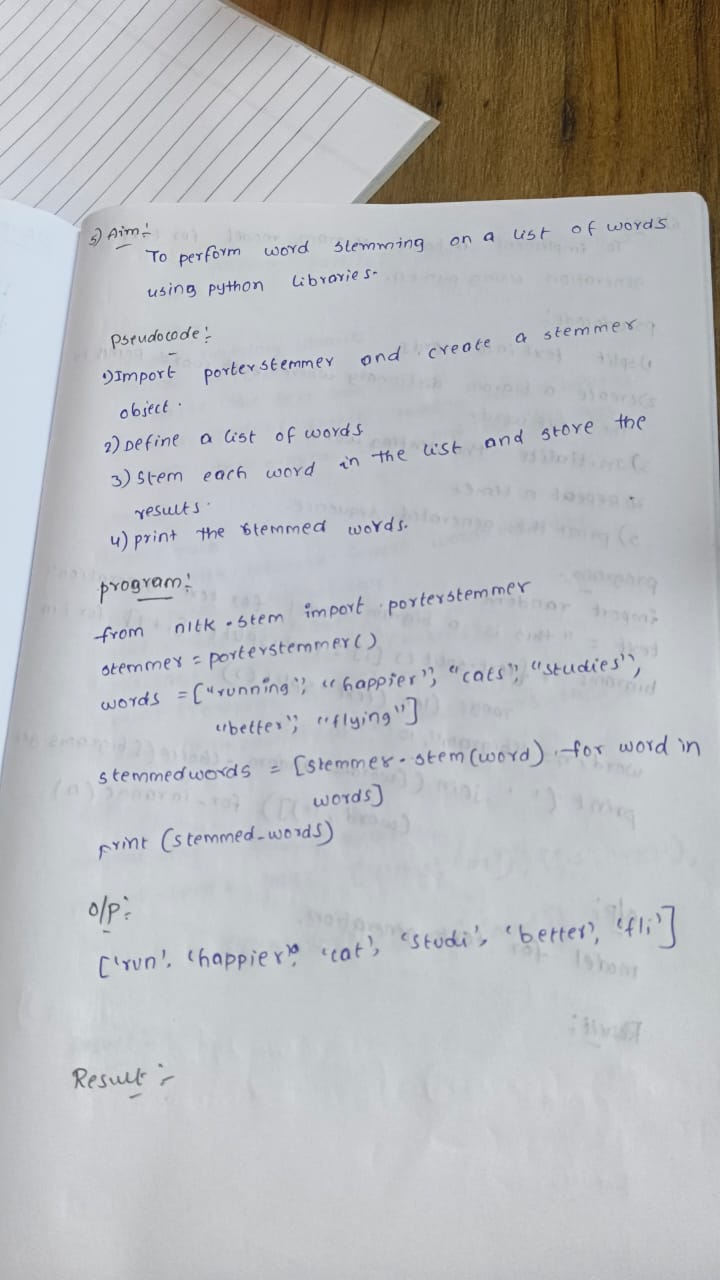 5) Aim:-
To perform word stemming on a list of words
using python libraries.
Pseudocode:
1) Import porterstemmer and create a stemmer
object.
2) Define a list of words
3) Stem each word in the list and store the
results.
4) print the stemmed words.
program:
from nltk.stem import porterstemmer
stemmer = porterstemmer()
words = ["running", "happier", "cats", "studies",
"better", "flying"]
stemmedwords = [stemmer.stem(word) for word in
words]
print (stemmed_words)
o/p:
['run', 'happier', 'cat', 'studi', 'better', 'fli']
Result:-